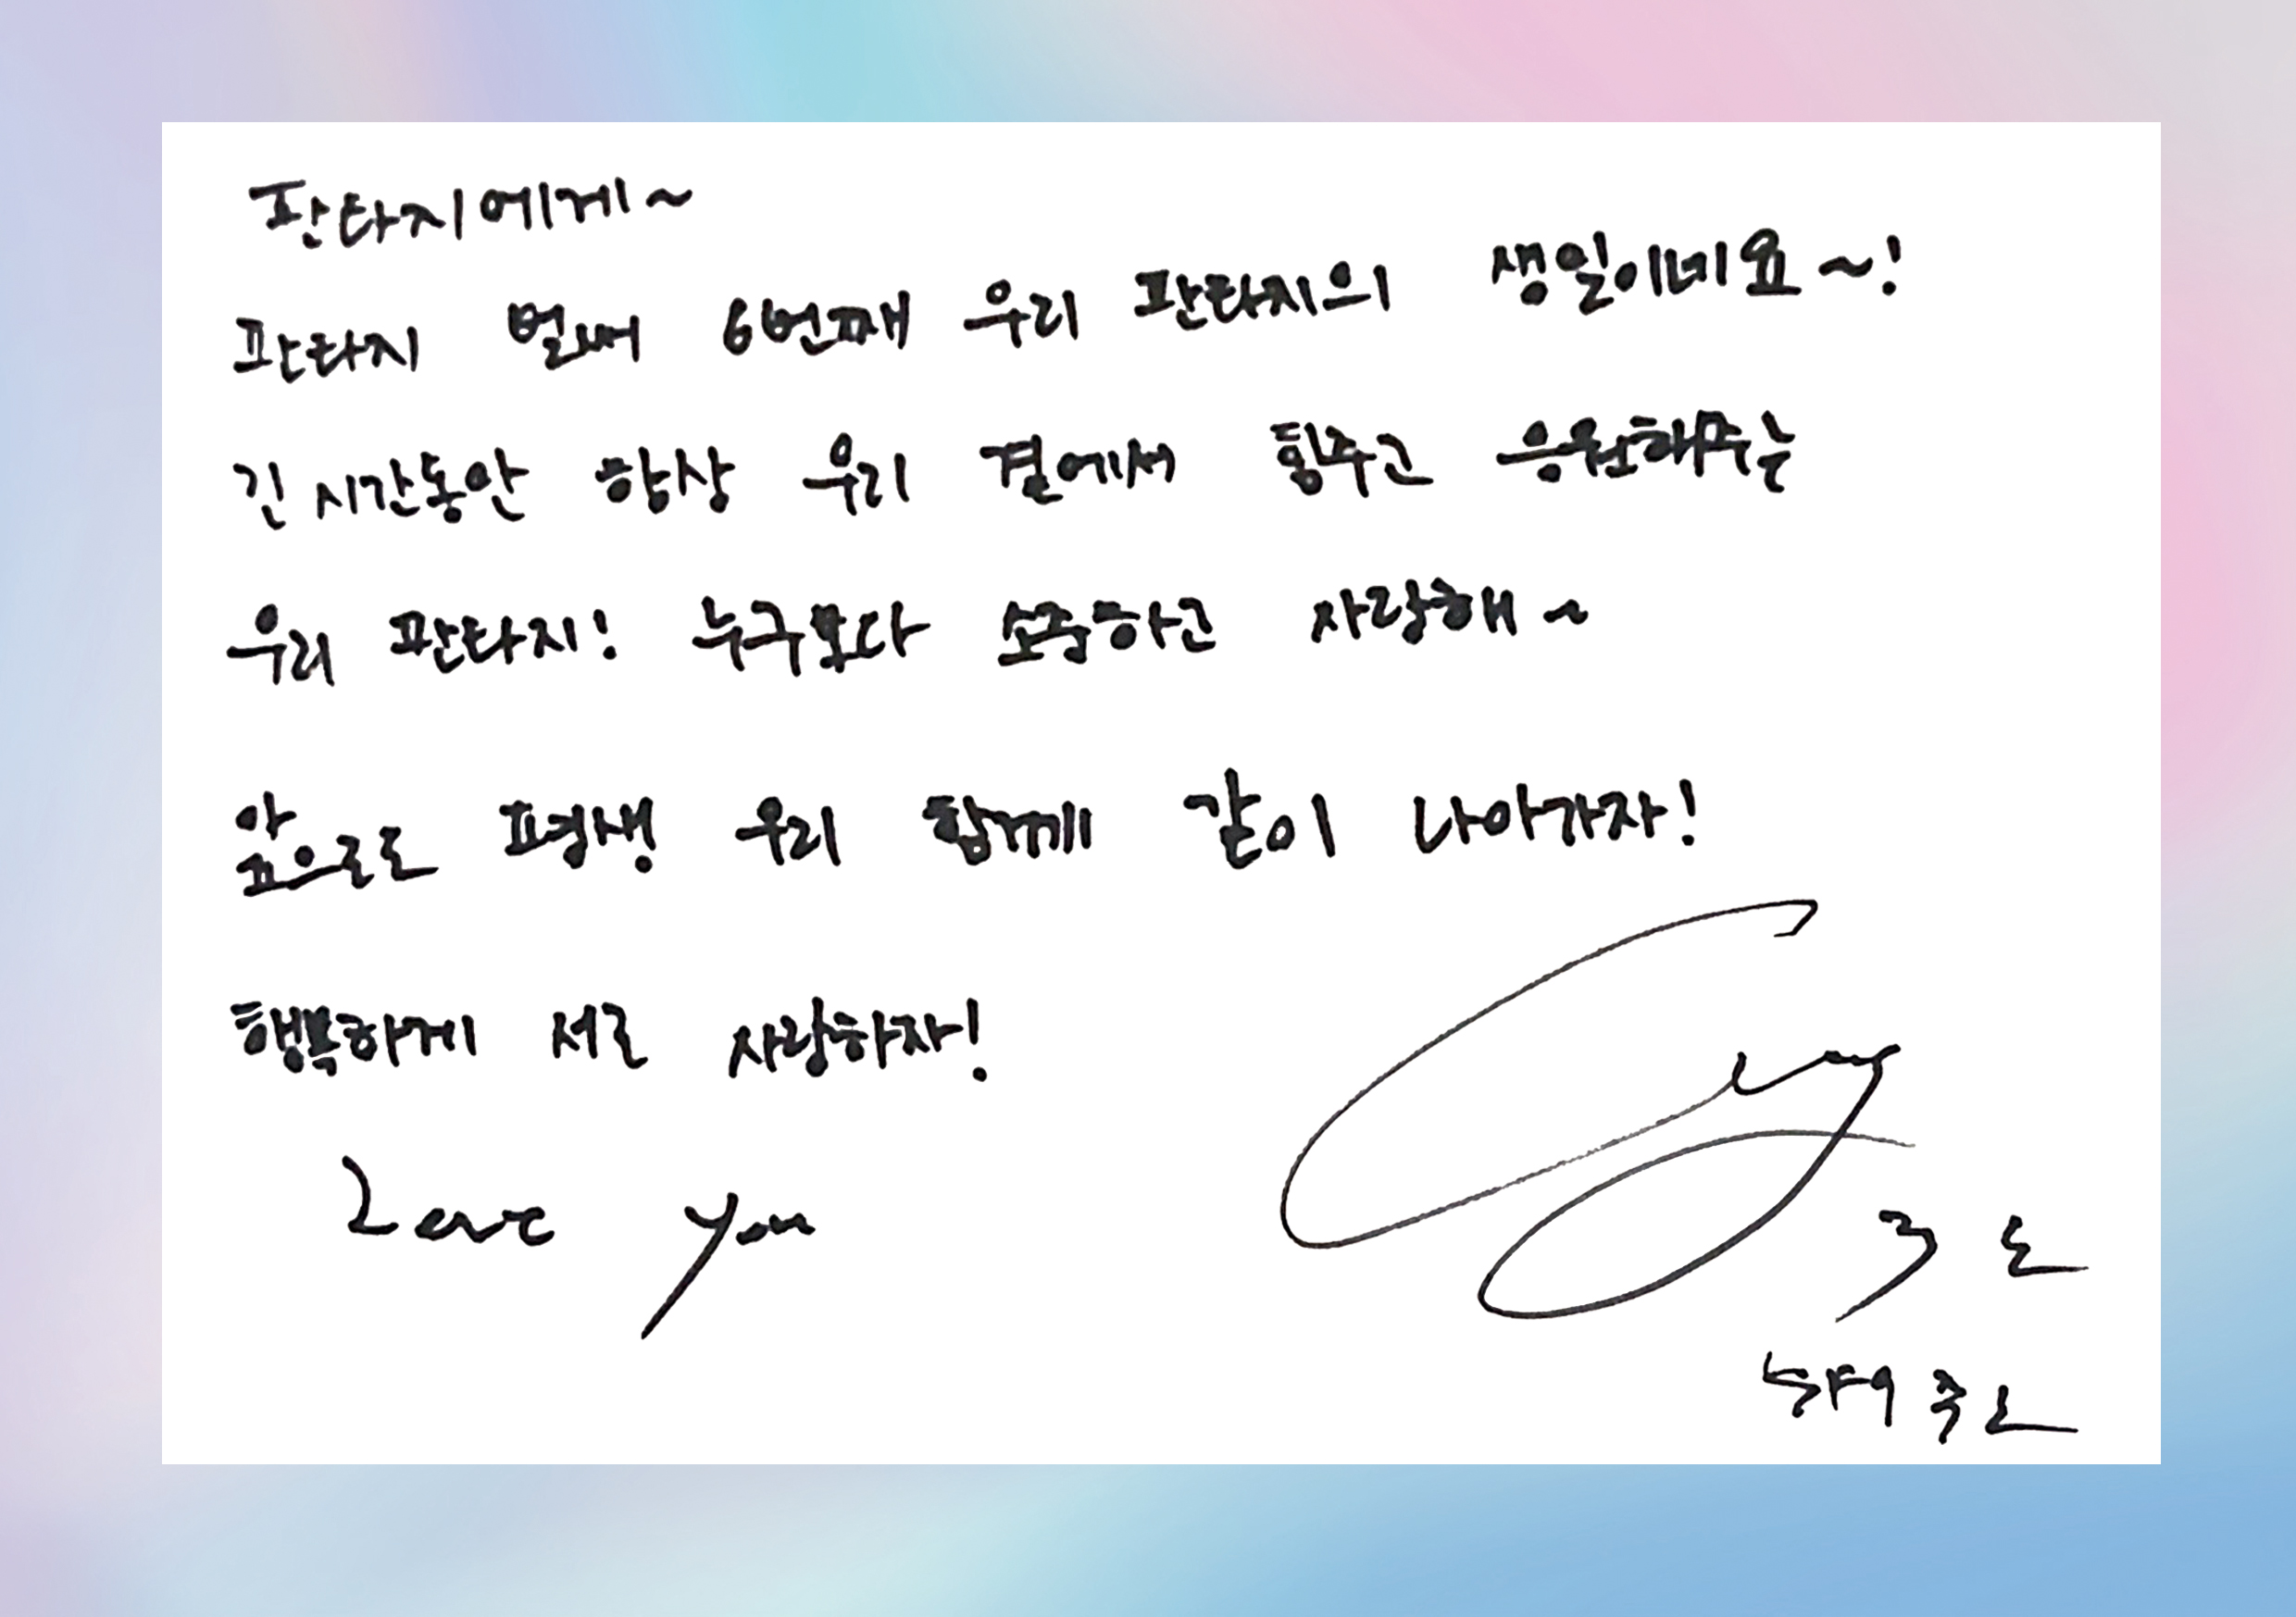 판타지에게~
판타지 벌써 6번째 우리 판타지의 생일이네요~!
긴 시간동안 항상 우리 곁에서 힘주고 응원해주는
우리 판타지! 누구보다 소중하고 사랑해~
앞으로도 평생 우리 함께 같이 나아가자!
행복하게 서로 사랑하자!
Love you